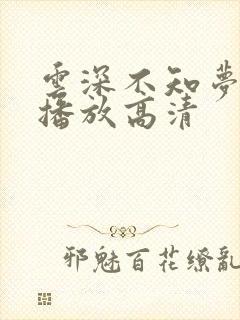 雲深不知夢
播放高清
邪魅百花缭亂